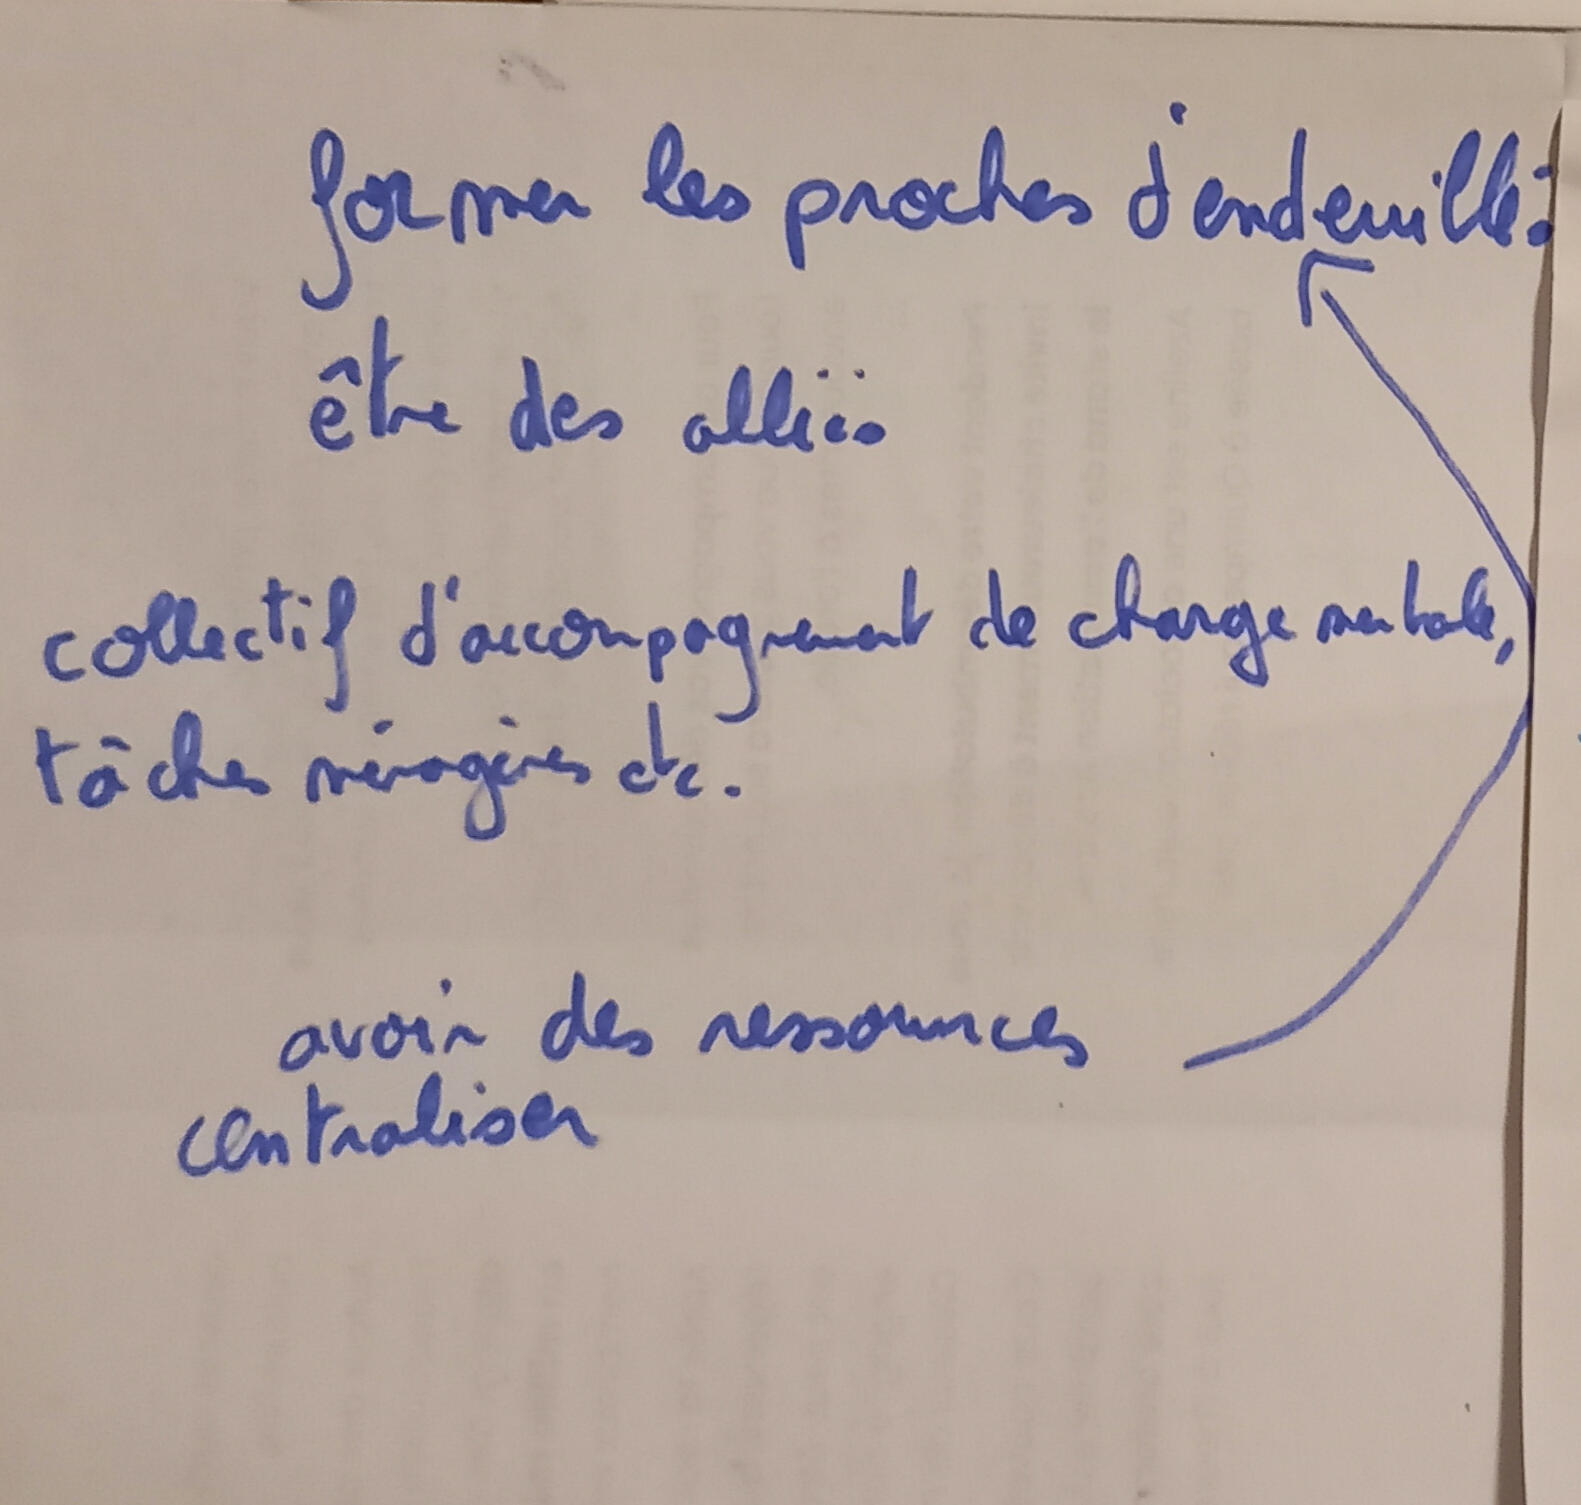 former les proches d'endeuillés
être des alliés
collectif d'accompagnement de charge mentale,
tâches ménagères etc.
avoir des ressources
centraliser